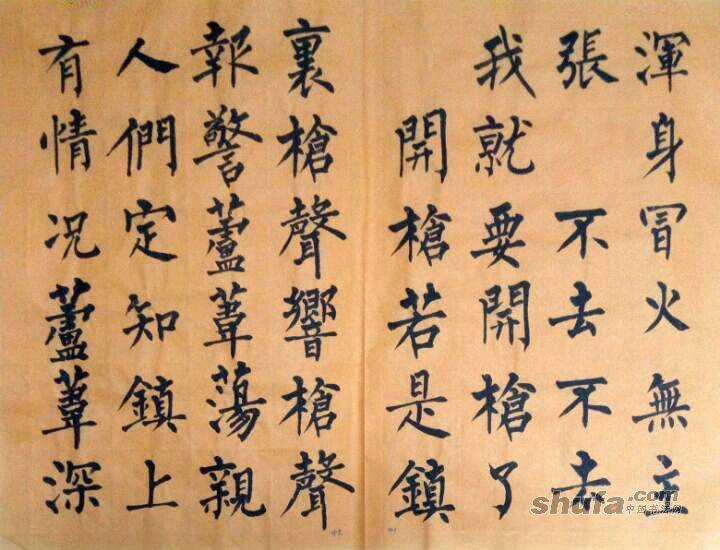 渾身冒火無主
張 不去不去
我就要開槍了
開槍若是鎮
裏槍聲響槍聲
報警蘆葦蕩親
人們定知鎮上
有情況蘆葦深
shufa.com
中国书法网